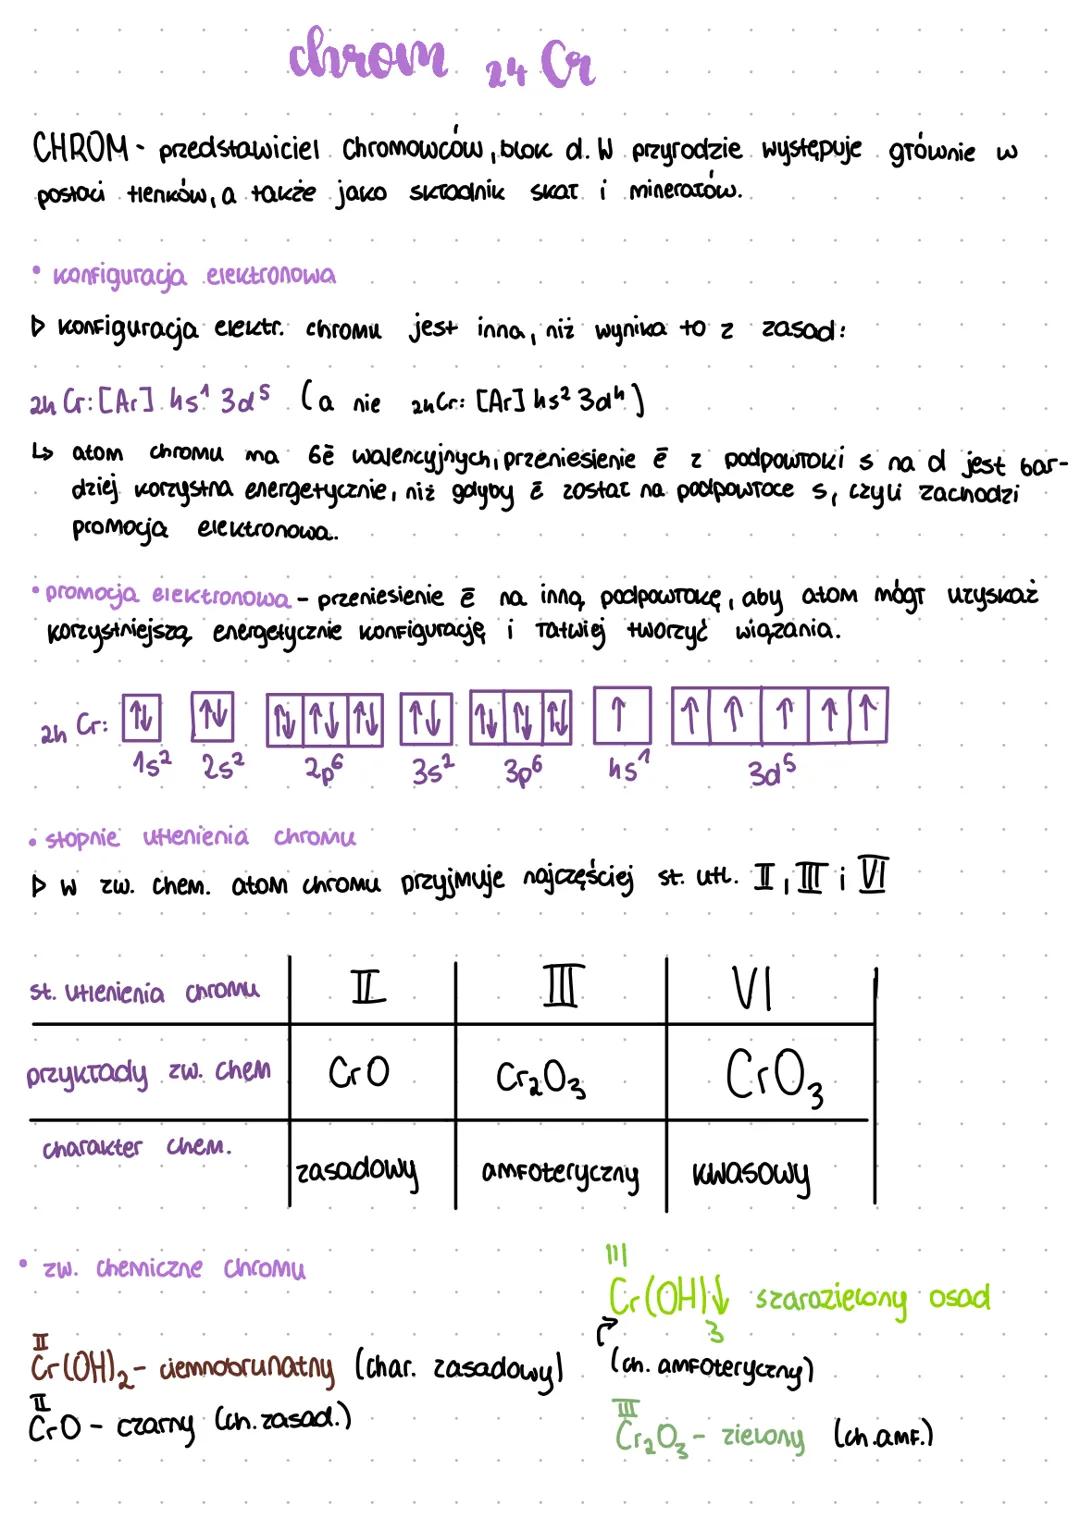 chrom ₂₄Cr
CHROM - przedstawiciel chromowców, blok d. W przyrodzie występuje głównie w
postaci tlenków, a także jako składnik skał i minerałów.
• konfiguracja elektronowa
▷ konfiguracja elektr. chromu jest inna, niż wynika to z zasad:
₂₄Cr: [Ar] 4s¹ 3d⁵ (a nie ₂₄Cr: [Ar] 4s² 3d⁴)
↳ atom chromu ma 6ē walencyjnych, przeniesienie ē z podpowłoki s na d jest bar-
dziej korzystna energetycznie, niż gdyby ē został na podpowłoce s, czyli zachodzi
promocja elektronowa.
• promocja elektronowa - przeniesienie ē na inną podpowłokę, aby atom mógł uzyskać
korzystniejszą energetycznie konfigurację i łatwiej tworzyć wiązania.
₂₄Cr: ↑↓ ↑↓ ↑↓ ↑↓ ↑↓ ↑↓ ↑↓ ↑↓ ↑↓ ↑ ↑ ↑ ↑ ↑ ↑
1s² 2s² 2p⁶ 3s² 3p⁶ 4s¹ 3d⁵
• stopnie utlenienia chromu
▷ w zw. chem. atom chromu przyjmuje najczęściej st. utl. II, III i VI
st. utlenienia chromu II III VI
przykłady zw. chem CrO Cr₂O₃ CrO₃
charakter chem. zasadowy amfoteryczny kwasowy
• zw. chemiczne chromu
III
Cr(OH)₃↓ szarozielony osad
(ch. amfoteryczny)
II
Cr(OH)₂ - ciemnobrunatny (char. zasadowy)
II
CrO - czarny (ch. zasad.)
III
Cr₂O₃ - zielony (ch. amf.)